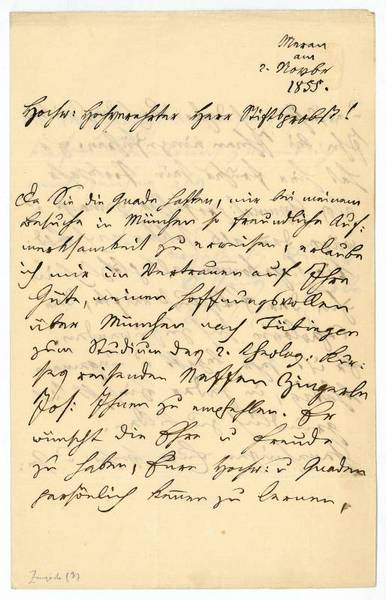 Meran
am
2. Novbr
1855.
Hochw: Hochverehrter Herr Stiftsprobst!
Da Sie die Gnade hatten, mir bei meinem
Besuche in München so freundliche Auf-
merksamkeit zu erweisen, erlaube
ich mir im Vertrauen auf Ihre
Güte, meinen hoffnungsvollen
über München nach Tübingen
zum Studium des 2. theolog: Kur-
ses reisenden Neffen Zingerle
Jos: Ihnen zu empfehlen. Er
wünscht die Ehre u Freude
zu haben, Euer Hochw: u Gnaden
persönlich kennen zu lernen,
Zingerle (3)